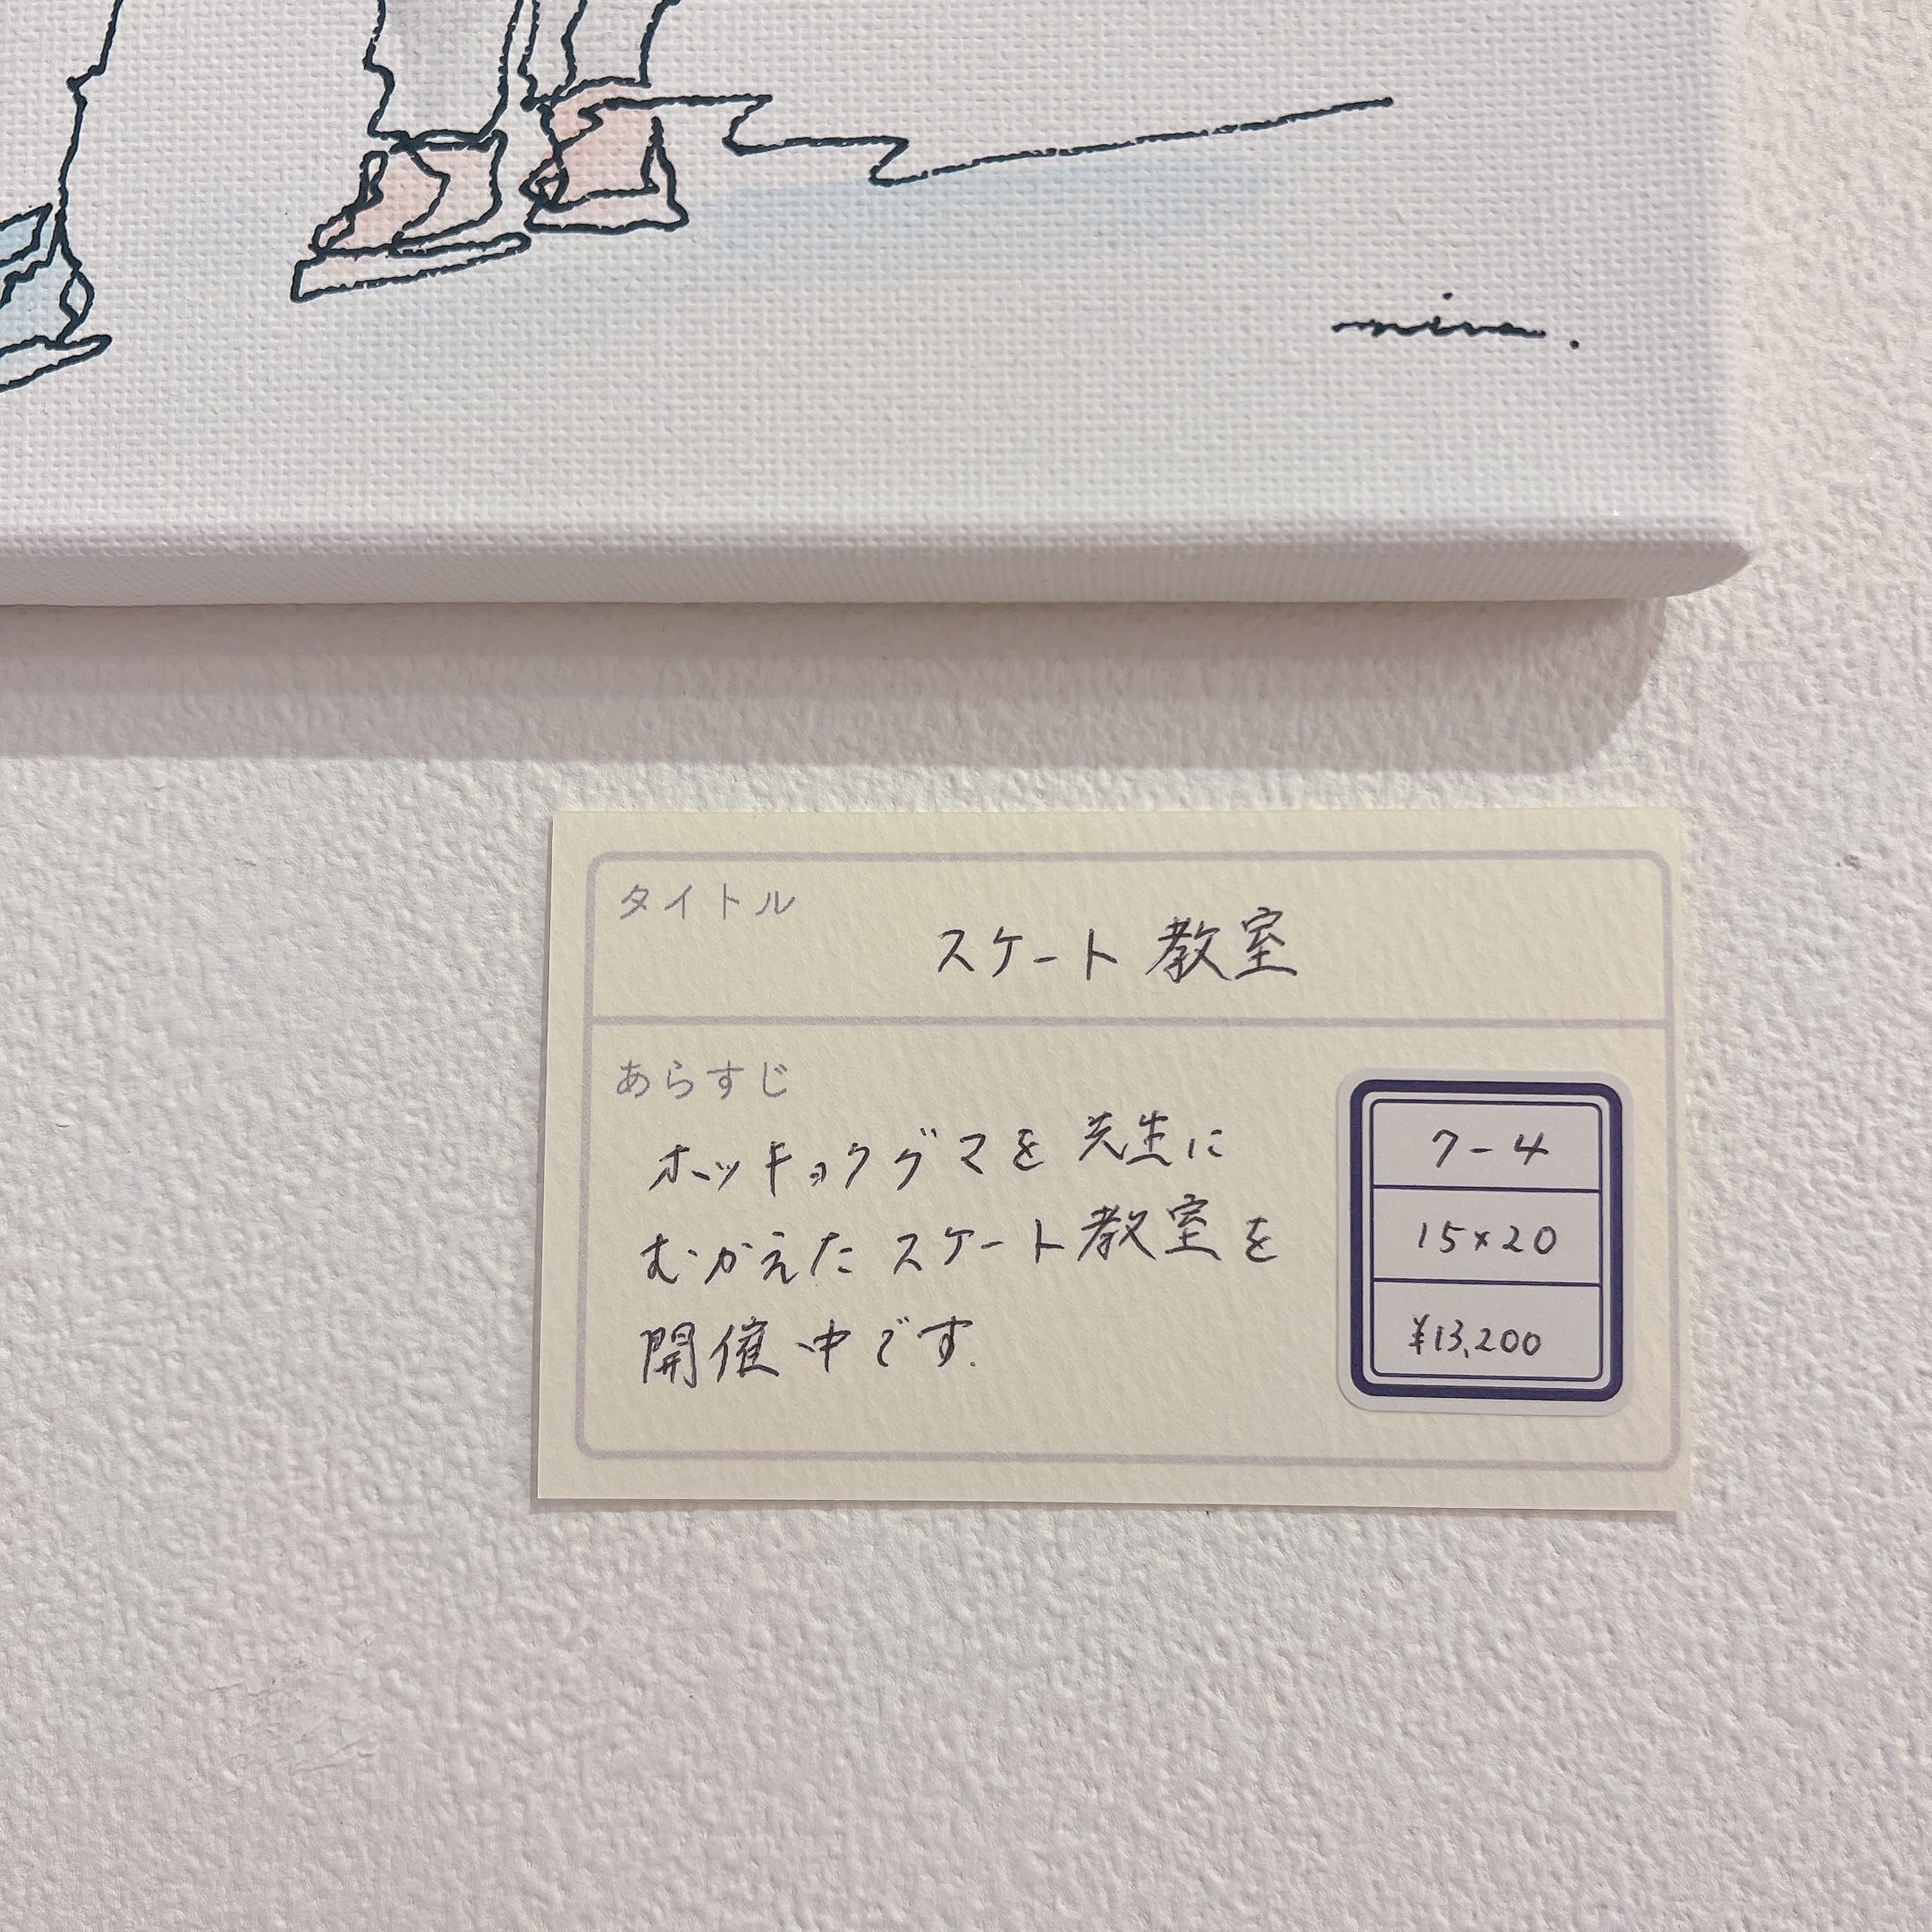 タイトル
スケート教室
あらすじ
ホッキョクグマを先生に
むかえたスケート教室を
開催中です.
7-4
15×20
¥13,200